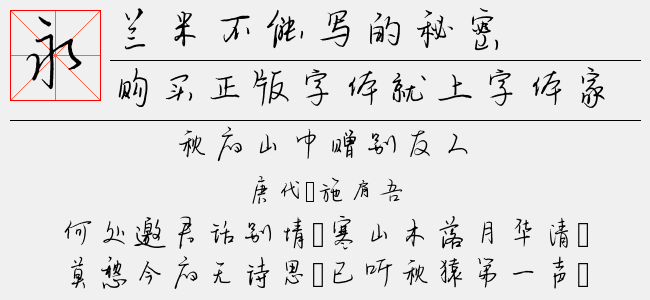 永
兰米不能写的秘密
购买正版字体就上字体家
秋夜山中赠别友人
唐代□施肩吾
何处邀君话别情□寒山木落月华清□
莫愁今夜无诗思□已听秋猿第一声□